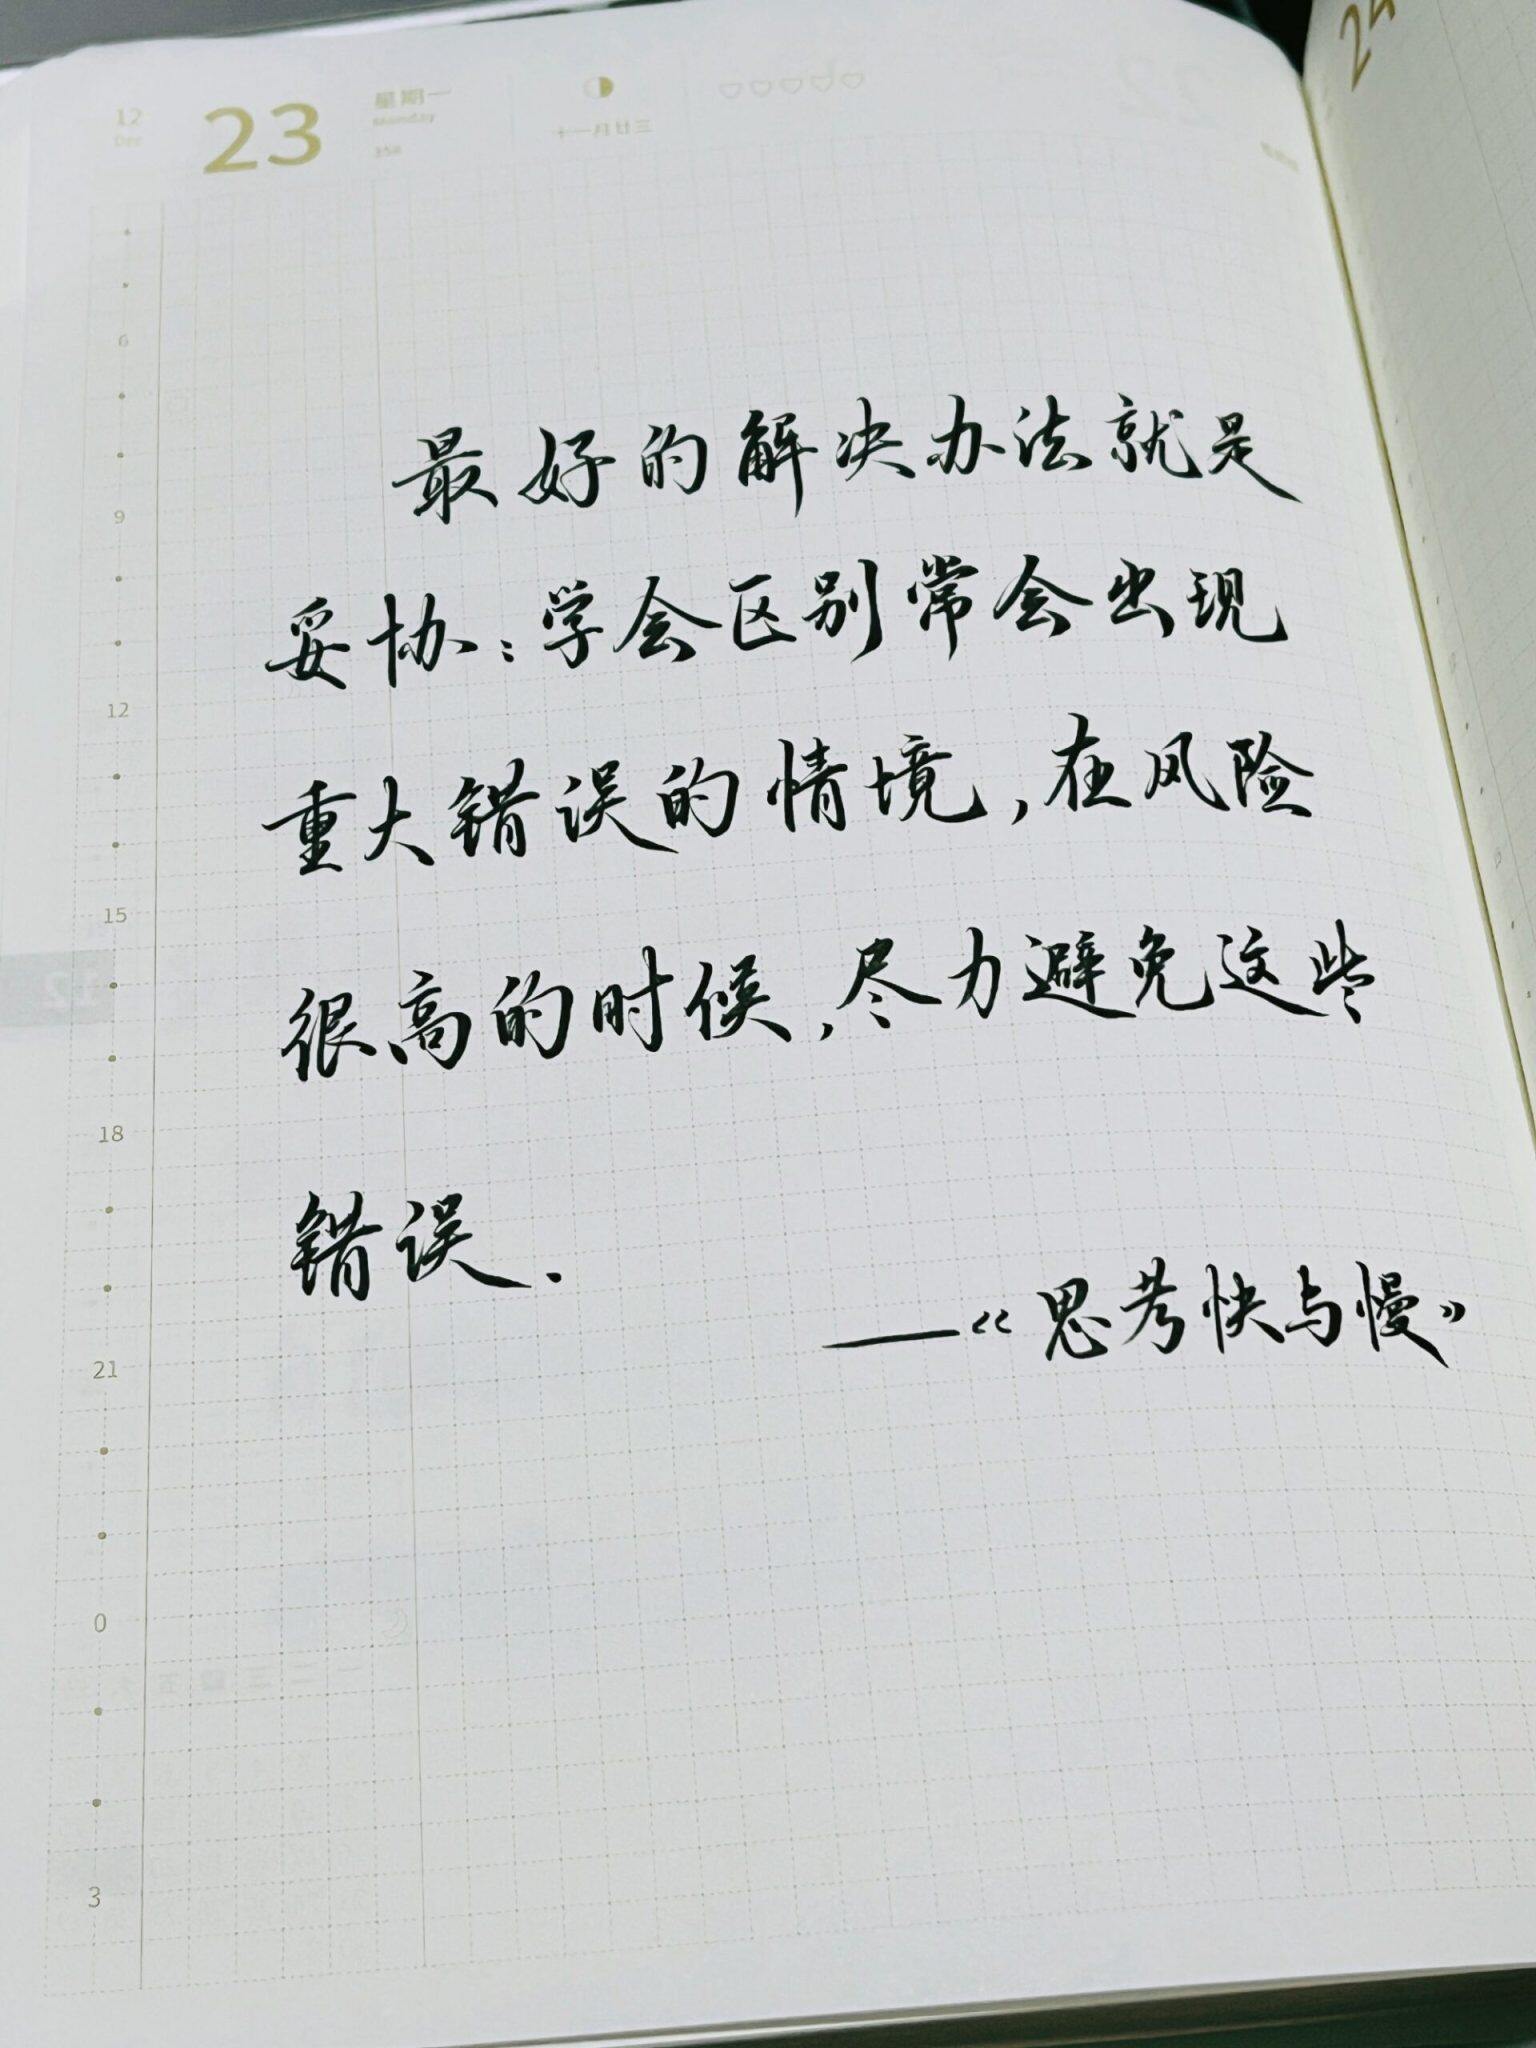 12
Dec
23
星期一
Monday
358
十一月廿三
24
6
9
12
15
18
21
0
3
最好的解决办法就是
妥协：学会区别常会出现
重大错误的情境，在风险
很高的时候，尽力避免这些
错误.
——《思考快与慢》